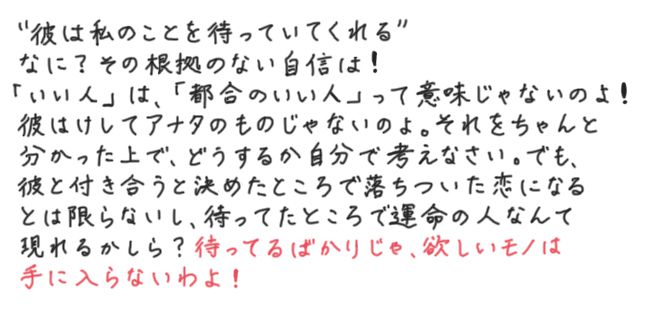 “彼は私のことを待っていてくれる”
なに？その根拠のない自信は！
「いい人」は、「都合のいい人」って意味じゃないのよ！
彼はけしてアナタのものじゃないのよ。それをちゃんと
分かった上で、どうするか自分で考えなさい。でも、
彼と付き合うと決めたところで落ちついた恋になる
とは限らないし、待ってたところで運命の人なんて
現れるかしら？待ってるばかりじゃ、欲しいモノは
手に入らないわよ！